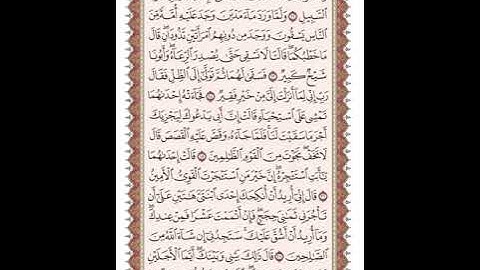 ٱلسَّبِيلِ ۝ وَلَمَّا وَرَدَ مَآءَ مَدْيَنَ وَجَدَ عَلَيْهِ أُمَّةً مِّنَ
ٱلنَّاسِ يَسْقُونَ وَوَجَدَ مِن دُونِهِمُ ٱمْرَأَتَيْنِ تَذُودَانِ ۖ قَالَ
مَا خَطْبُكُمَا ۖ قَالَتَا لَا نَسْقِى حَتَّىٰ يُصْدِرَ ٱلرِّعَآءُ ۖ وَأَبُونَا
شَيْخٌ كَبِيرٌ ۝ فَسَقَىٰ لَهُمَا ثُمَّ تَوَلَّىٰٓ إِلَى ٱلظِّلِّ فَقَالَ
رَبِّ إِنِّى لِمَآ أَنزَلْتَ إِلَىَّ مِنْ خَيْرٍ فَقِيرٌ ۝ فَجَآءَتْهُ إِحْدَىٰهُمَا
تَمْشِى عَلَى ٱسْتِحْيَآءٍ قَالَتْ إِنَّ أَبِى يَدْعُوكَ لِيَجْزِيَكَ
أَجْرَ مَا سَقَيْتَ لَنَا ۚ فَلَمَّا جَآءَهُۥ وَقَصَّ عَلَيْهِ ٱلْقَصَصَ قَالَ
لَا تَخَفْ ۖ نَجَوْتَ مِنَ ٱلْقَوْمِ ٱلظَّٰلِمِينَ ۝ قَالَتْ إِحْدَىٰهُمَا
يَٰٓأَبَتِ ٱسْتَـْٔجِرْهُ ۖ إِنَّ خَيْرَ مَنِ ٱسْتَـْٔجَرْتَ ٱلْقَوِىُّ ٱلْأَمِينُ
۝ قَالَ إِنِّىٓ أُرِيدُ أَنْ أُنكِحَكَ إِحْدَى ٱبْنَتَىَّ هَٰتَيْنِ عَلَىٰٓ أَن
تَأْجُرَنِى ثَمَٰنِىَ حِجَجٍ ۖ فَإِنْ أَتْمَمْتَ عَشْرًا فَمِنْ عِندِكَ ۖ
وَمَآ أُرِيدُ أَنْ أَشُقَّ عَلَيْكَ ۚ سَتَجِدُنِىٓ إِن شَآءَ ٱللَّهُ مِنَ
ٱلصَّٰلِحِينَ ۝ قَالَ ذَٰلِكَ بَيْنِى وَبَيْنَكَ ۖ أَيَّمَا ٱلْأَجَلَيْنِ